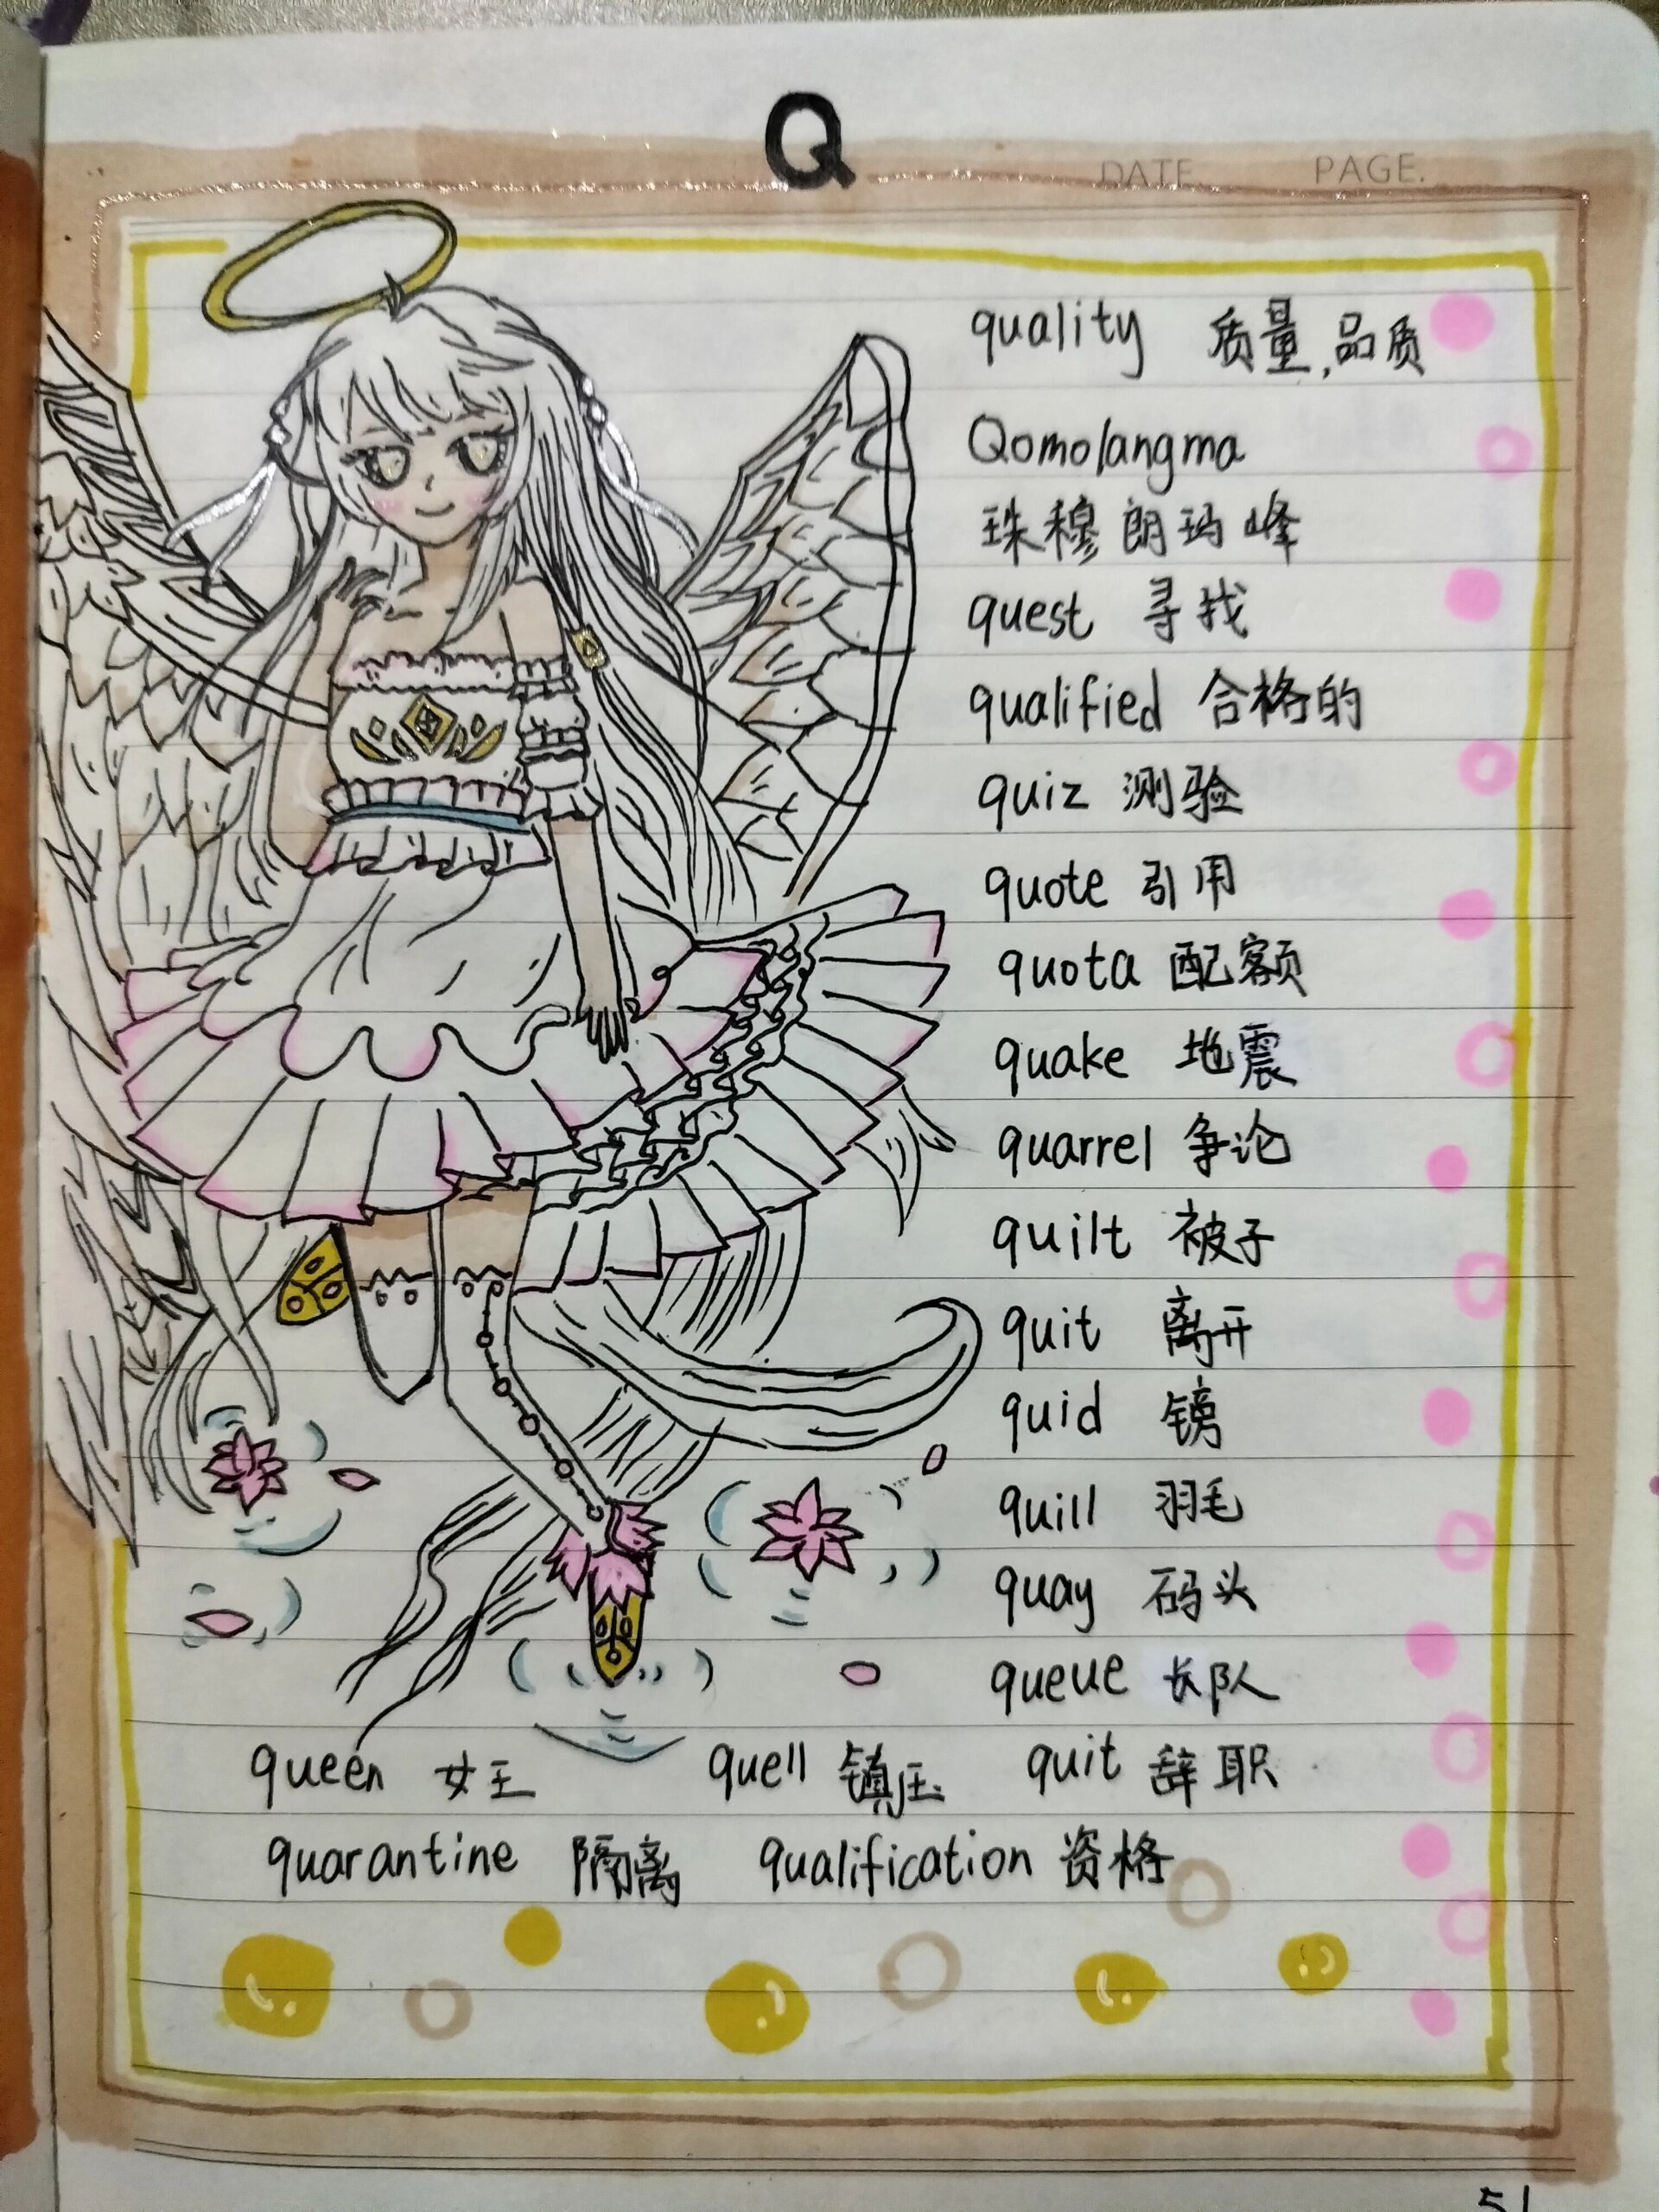 Q
DATE. PAGE.
quality 质量,品质
Qomolangma
珠穆朗玛峰
quest 寻找
qualified 合格的
quiz 测验
quote 引用
quota 配额
quake 地震
quarrel 争论
quilt 被子
quit 离开
quid 镑
quill 羽毛
quay 码头
queue 长队
queen 女王 quell 镇压 quit 辞职
quarantine 隔离 qualification 资格
51